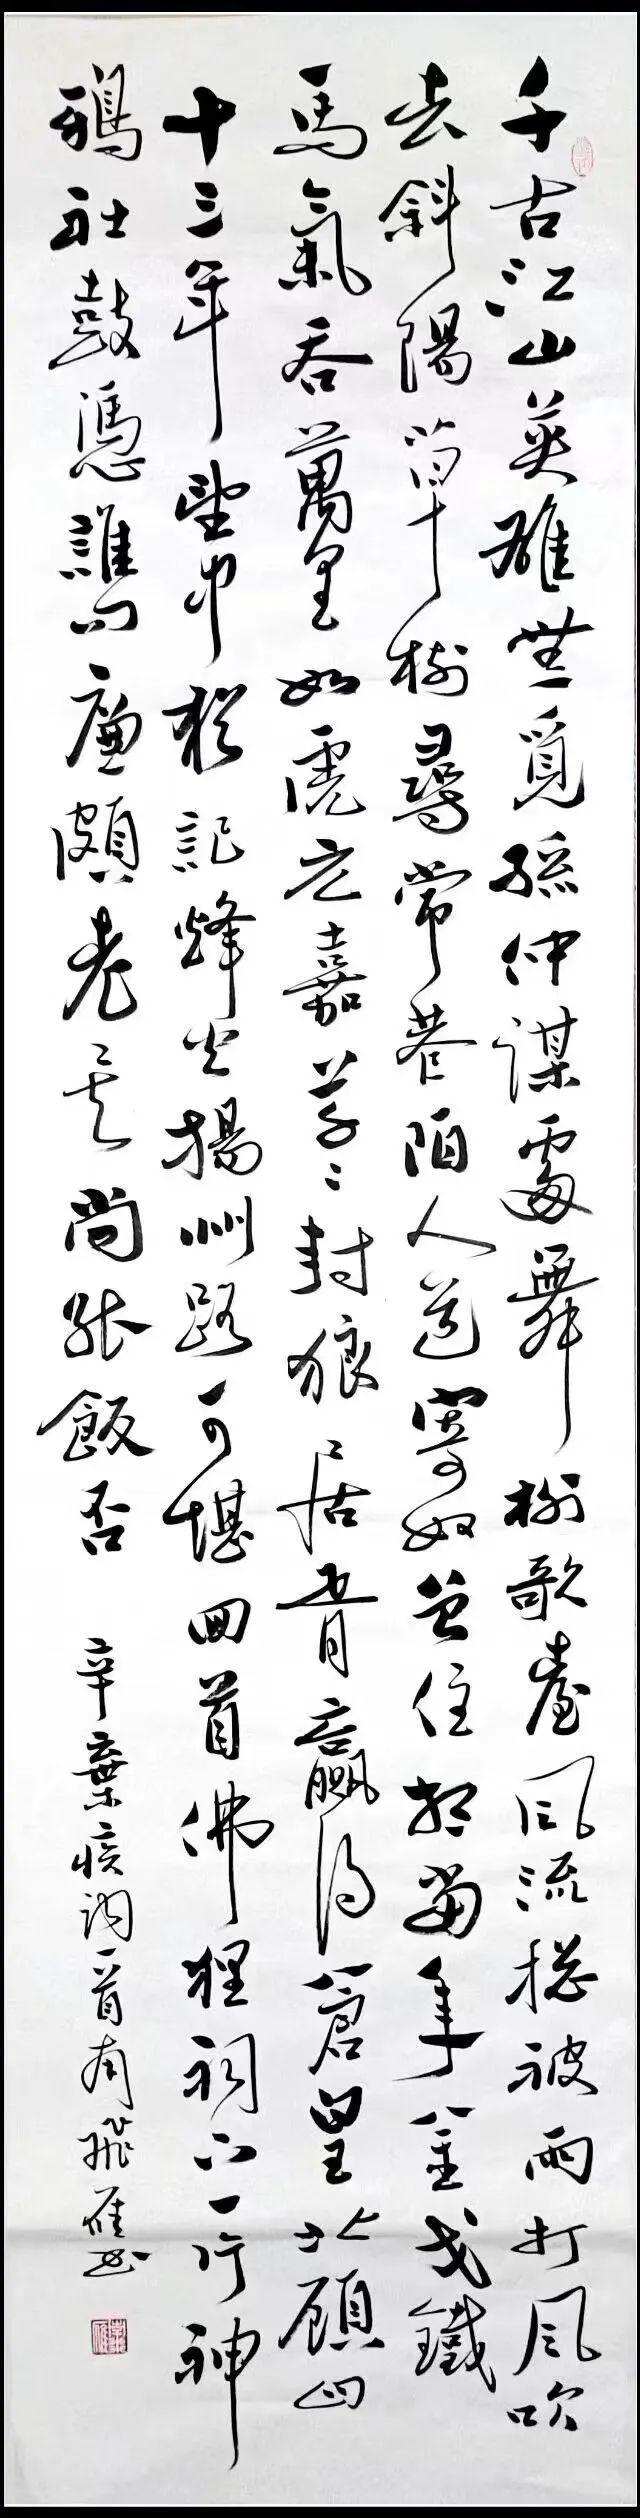 千古江山英雄無覓孫仲謀處舞榭歌臺風流總被雨打風吹
去斜陽草樹尋常巷陌人道寄奴曾住想當年金戈鐵
馬氣吞萬里如虎元嘉草〻封狼居胥贏得倉皇北顧四
十三年望中猶記烽火揚州路可堪回首佛狸祠下一片神
鴉社鼓憑誰問廉頗老矣尚能飯否
辛棄疾詞一首南飛雁書